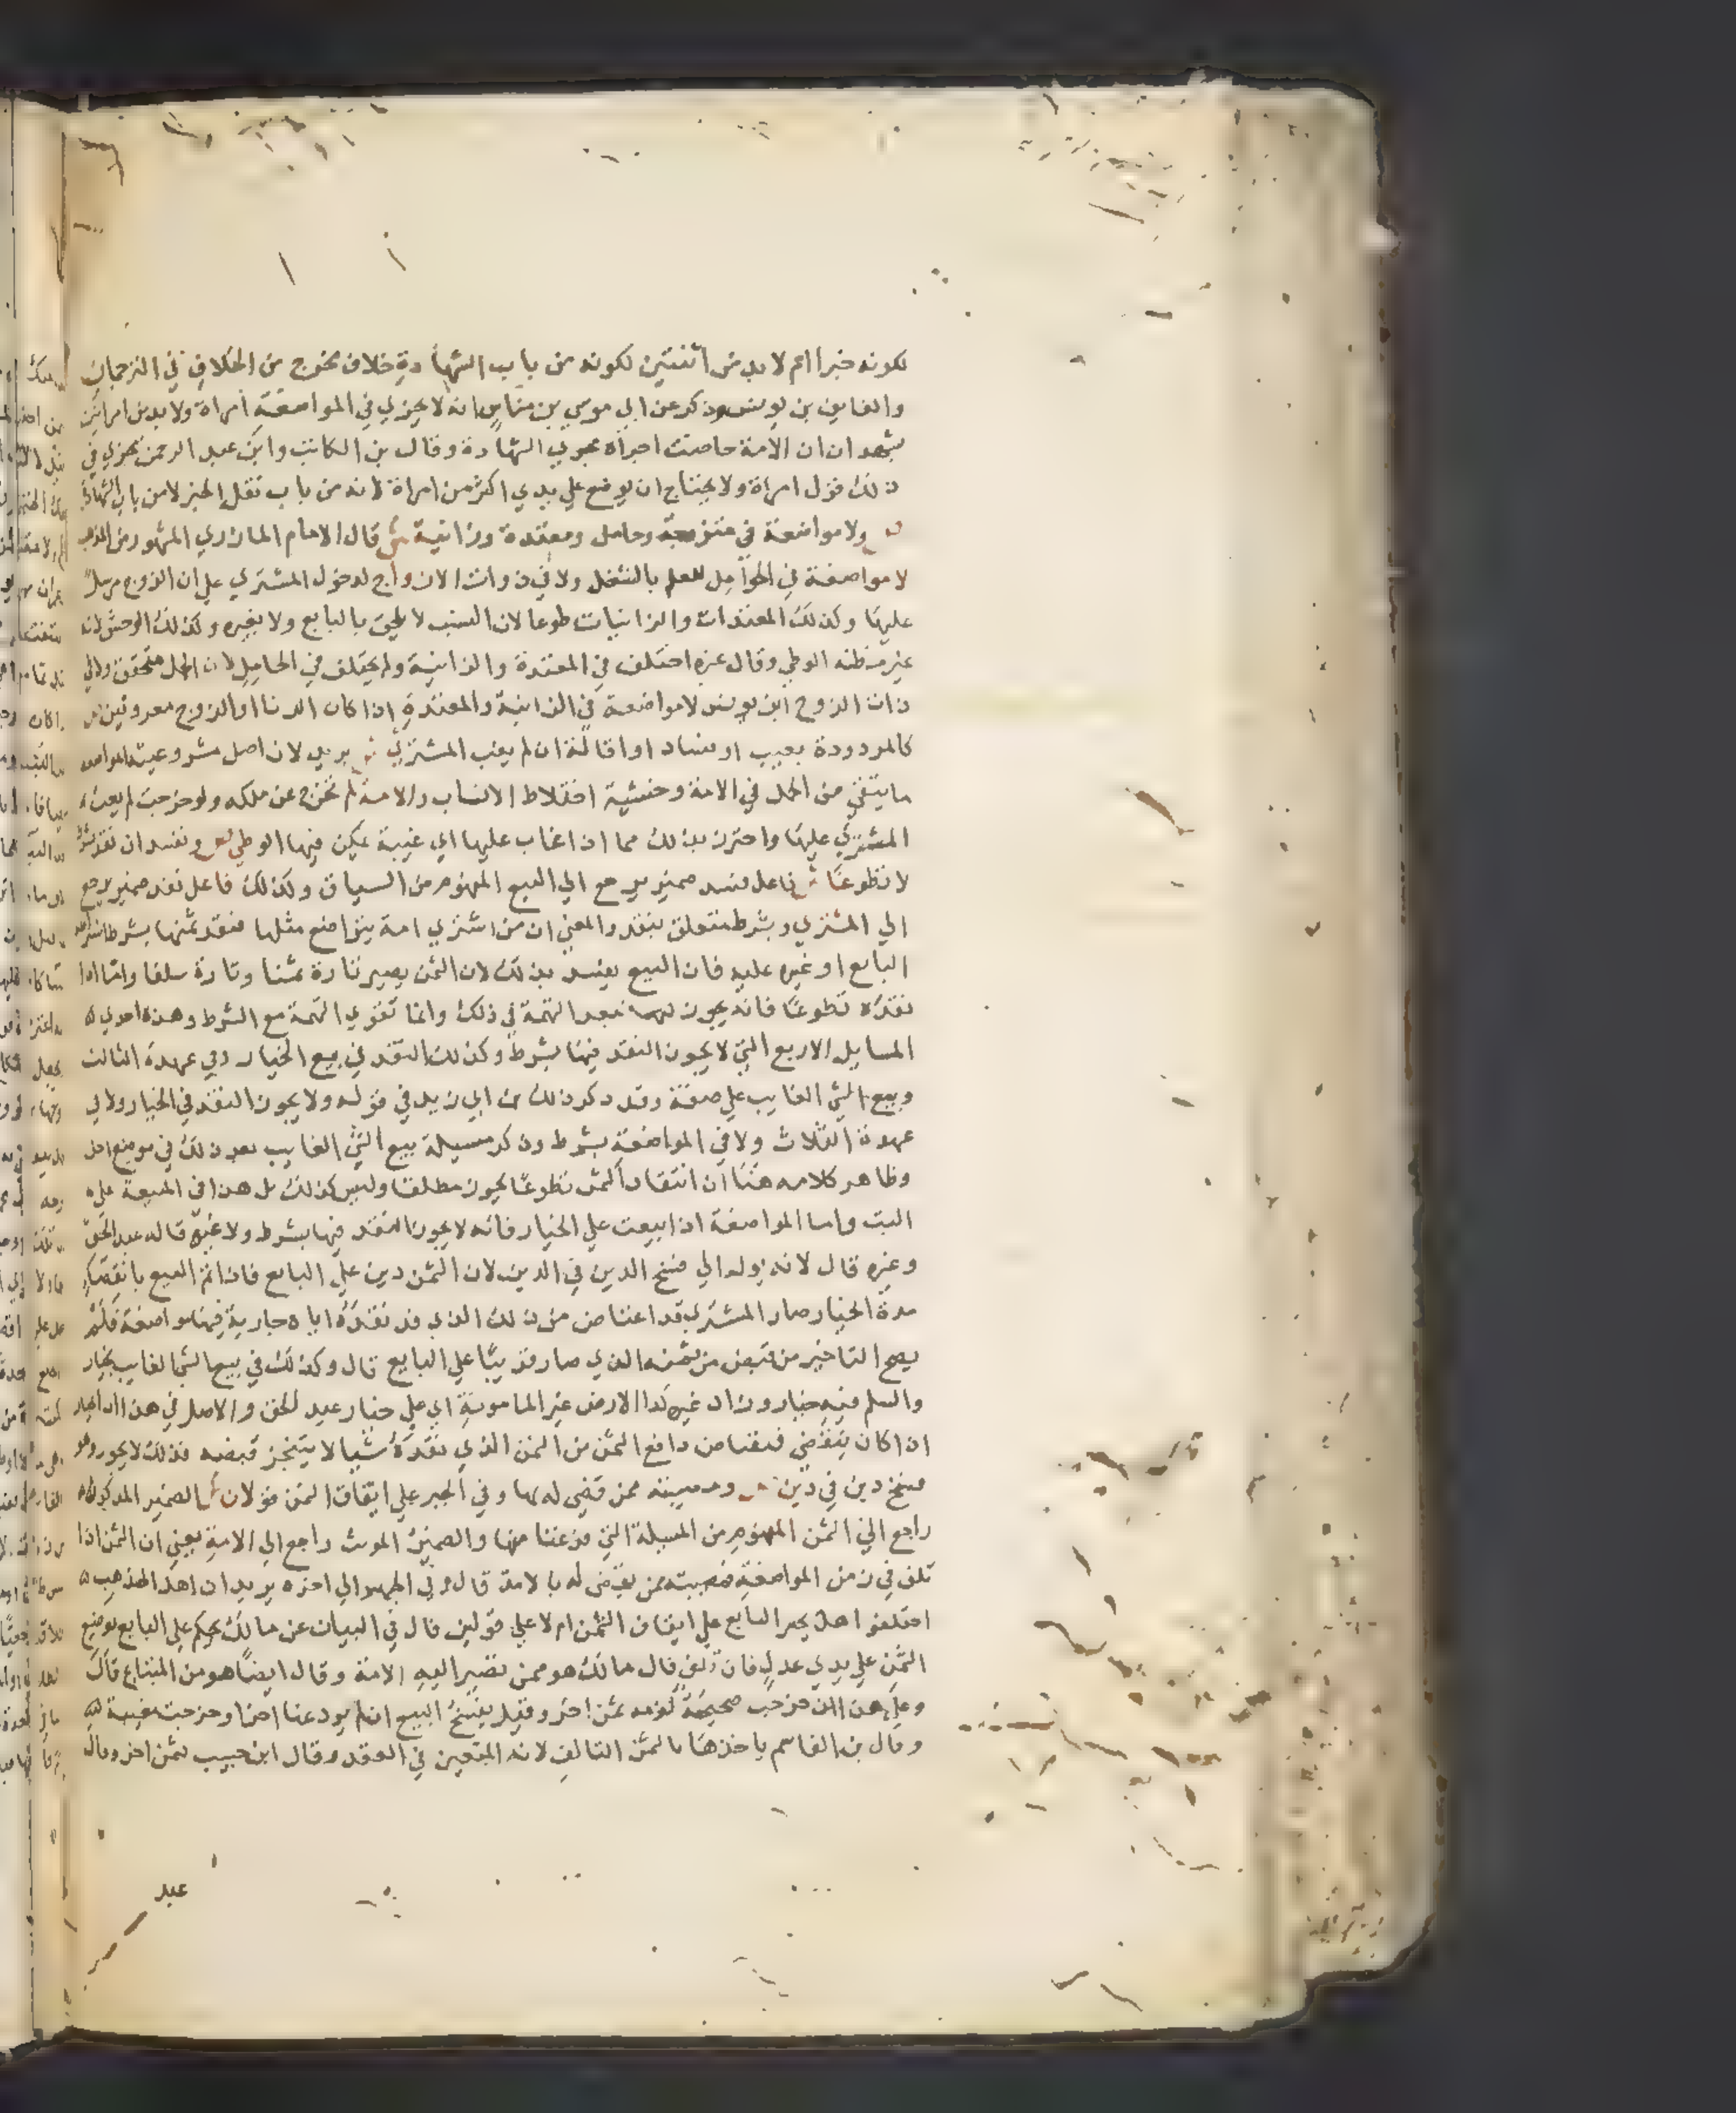 لكونه خبرا ام لا بد من اثنتين لكونه من باب الشهادة خلاف مخرج من الخلاف في الترجمان
والقايف بن يونس وذكر عن ابي موسي بن مناس انه لا يجزي في المواضعة امراة ولا بد من امراتين
يشهدان ان الامة حاضت اجراه مجري الشهادة وقال بن الكاتب وابن عبد الرحمن يجزي في
ذلك قول امراة ولا يحتاج ان يوضع علي يدي اكثر من امراة لانه من باب نقل الخبر لا من باب الشهادة
ولا مواضعة في متزوجة وحامل ومعتدة وزانية ش قال الامام المازري المشهور من المذهب
لا مواضعة في الحوامل للعلم بالشغل ولا في ذوات الازواج لدخول المشتري علي ان الزوج مرسل
عليها وكذلك المعتدات والزانيات طوعا لان النسب لا يلحق بالبايع ولا بغيره وكذلك الوخش لانه
غير مظنة الوطي وقال غيره اختلف في المعتدة والزانية ولم يختلف في الحامل لان الحمل متحقق ولا في
ذات الزوج ابن يونس لا مواضعة في الزانية والمعتدة اذا كان الزنا او الزوج معروفين
كالمردودة بعيب او فساد او اقالة ان لم يغب المشتري ش يريد لان اصل مشروعية المواضعة
ما يتقي من الحمل في الامة وخشية اختلاط الانساب والامة لم تخرج عن ملكه ولو خرجت لم يغب
المشتري عليها واحترز بذلك مما اذا غاب عليها اي غيبة يمكن فيها الوطي ص وفسد ان نقد بشرط
لا تطوعا ش فاعل فسد ضمير يرجع الي البيع المفهوم من السياق وكذلك فاعل نقد ضمير يرجع
الي المشتري وبشرط متعلق بنقد والمعني ان من اشتري امة يتواضع مثلها فنقد ثمنها بشرط اشترطه
البايع او غيره عليه فان البيع يفسد بذلك لان الثمن يصير تارة ثمنا وتارة سلفا واما اذا
نقده تطوعا فانه يجوز لبعد التهمة في ذلك وانما تقوي التهمة مع الشرط وهذه احدي
المسايل الاربع التي لا يجوز النقد فيها بشرط وكذلك النقد في بيع الخيار وفي عهدة الثالث
وبيع الشي الغايب علي صفة وقد ذكر ذلك بن ابي زيد في قوله ولا يجوز النقد في الخيار ولا في
عهدة الثلاث ولا في المواضعة بشرط وذكر مسيلة بيع الشي الغايب بعد ذلك في موضع اخر
وظاهر كلامه هنا ان انتقاد الثمن تطوعا يجوز مطلقا وليس كذلك بل هذا في المبيعة علي
البت واما المواضعة اذا بيعت علي الخيار فانه لا يجوز النقد فيها بشرط ولا غيره قاله عبد الحق
وغيره قال لانه يول الي فسخ الدين في الدين لان الثمن دين علي البايع فاذا تم البيع بانقضا
مدة الخيار صار المشتري قد اعتاض من ذلك الذي قد نقده اياه جارية فيها مواضعة فلم
يصح التاخير من قبض من ثمنه الذي صار دينا علي البايع قال وكذلك في بيع الشي الغايب بخيار
والسلم فيه خيار وزاد غيره كرا الارض غير المامونة اي علي خيار عبد الحق والاصل في هذا ان الخيار
اذا كان ينقضي فيقتاض دافع الثمن من الثمن الذي نقده شيا لا يتنجز قبضه فذلك لا يجوز وهو
فسخ دين في دين ص ومصيبته ممن قضي له بها وفي الجبر علي ايقاف الثمن قولان ش الضمير المذكور
راجع الي الثمن المفهوم من المسيلة التي فرغنا منها والضمير المونث راجع الي الامة يعني ان الثمن اذا
تلف في زمن المواضعة فمصيبته ممن يقضي له بالامة قال وفي الجبر الي اخره يريد ان اهل المذهب
اختلفوا هل يجبر البايع علي ايقاف الثمن ام لا علي قولين قال في البيان عن مالك يحكم علي البايع بوضع
الثمن علي يدي عدل فان تلف قال مالك هو ممن تصير اليه الامة وقال ايضا هو من المبتاع قال
وعلي هذا ان خرجت صحيحة لزمه ثمن اخر وقيل يفسخ البيع ان لم يدعنا اخرا وخرجت معيبة
وقال بن القاسم ياخذها بالثمن التالف لانه المتعين في العقد وقال ابن حبيب بثمن اخر وقال
عبد